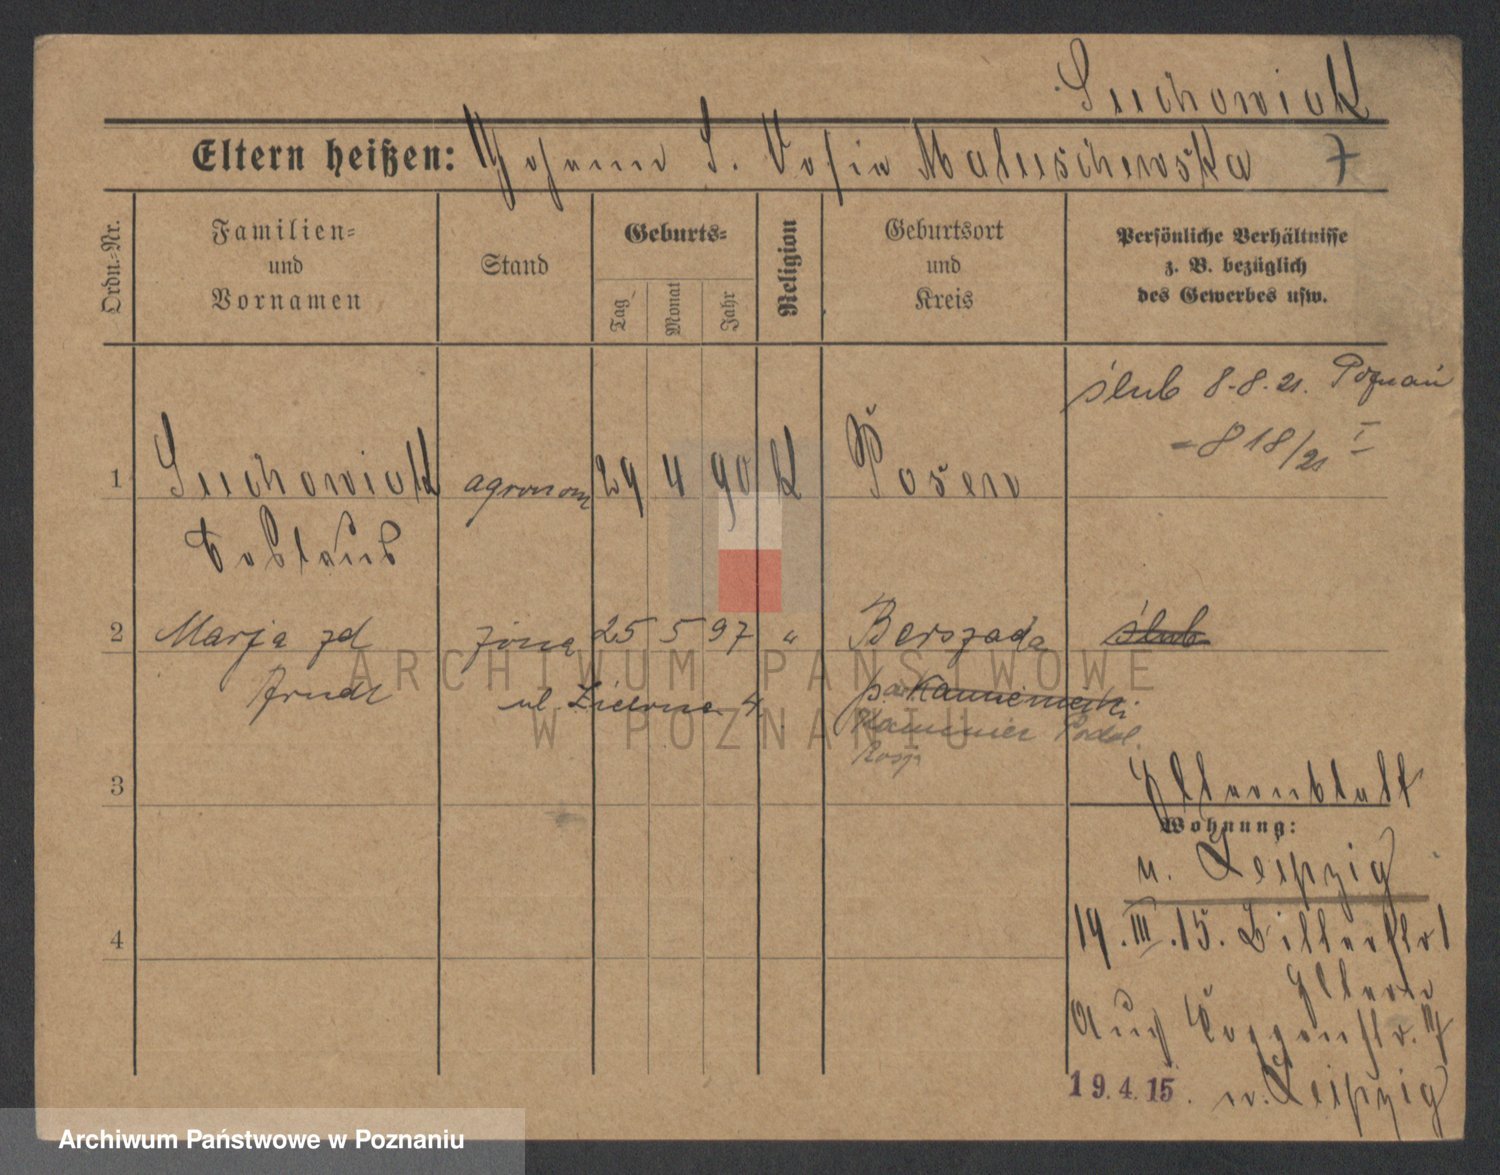 Suchowiak
Eltern heißen: Johann u. Sofia Maluschewska 7
Ordn.-Nr.
Familien-
und
Vornamen
Stand
Geburts-
Tag
Monat
Jahr
Religion
Geburtsort
und
Kreis
Persönliche Verhältnisse
z. B. bezüglich
des Gewerbes usw.
ślub 8-8-21. Poznań
= 818/21 I
1 Suchowiak agronom 29 4 90 K Posen
Boblaus
2 Marja zd żona 25 5 97 " Berszada ślub
Arndt ul. Zielona 4 pow Kamieniecki
Kamieniec Podol.
Rosja
3
Elternblatt
Wohnung:
n. Leipzig
4
19.III.15. Bitterstr 1
Eltern
Aug
19.4.15. n. Leipzig
ARCHIWUM PAŃSTWOWE
W POZNANIU
Archiwum Państwowe w Poznaniu